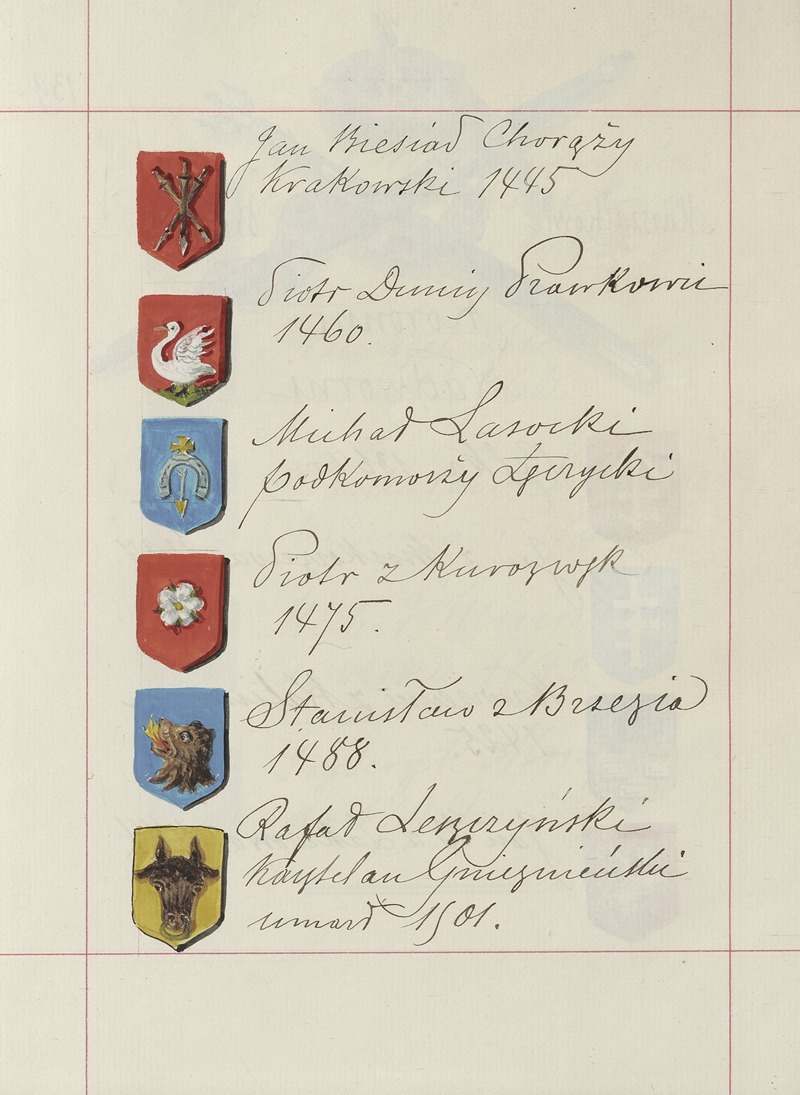 Jan Biesiad Chorąży
Krakowski 1445
Piotr Dunin Prawkowic
1460.
Michał Lasocki
podkomorzy Łęczycki
Piotr z Kurozwęk
1475.
Stanisław z Brzezia
1488.
Rafał Leszczyński
Kasztelan Gnieznieński
umarł 1501.